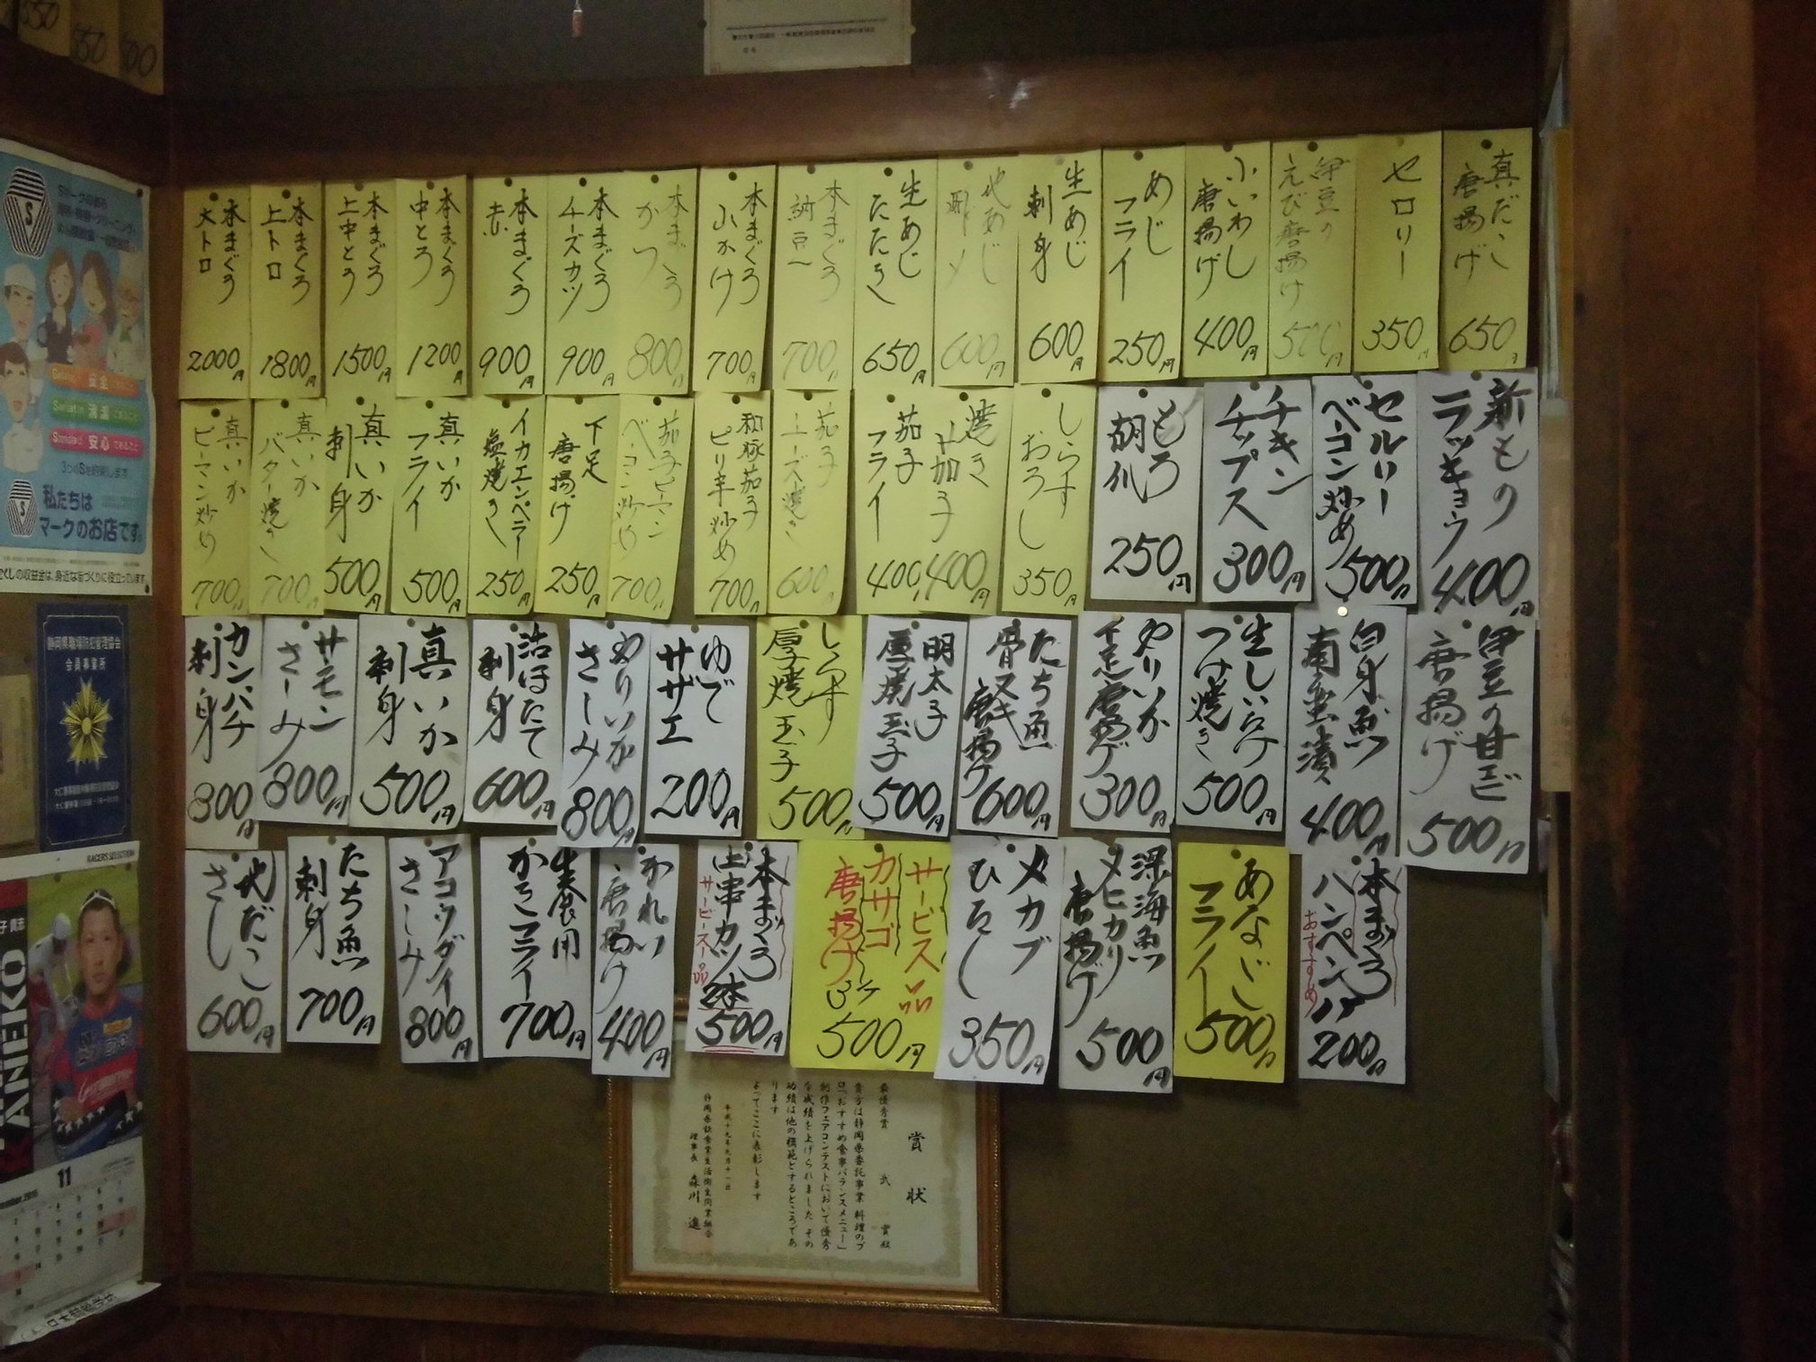 本まぐろ
大トロ
2000円
本まぐろ
上トロ
1800円
本まぐろ
上中とろ
1500円
本まぐろ
中とろ
1200円
本まぐろ
赤
900円
本まぐろ
チーズカツ
900円
本まぐろ
かつ
800円
本まぐろ
山かけ
700円
本まぐろ
納豆
700円
生あじ
たたき
650円
地あじ
600円
生あじ
刺身
600円
めじ
フライ
250円
小いわし
唐揚げ
400円
伊豆の
えび唐揚げ
500円
セロリー
350円
真だこ
唐揚げ
650円
真いか
ピーマン炒め
700円
真いか
バター焼き
700円
真いか
刺身
500円
真いか
フライ
500円
イカエンペラー
塩焼き
250円
下足
唐揚げ
250円
茄子ピーマン
ベーコン炒め
700円
和豚茄子
ピリ辛炒め
700円
茄子
チーズ焼き
600円
茄子
フライ
400円
焼き
茄子
400円
しらす
おろし
350円
もろ
胡瓜
250円
チキン
チップス
300円
セルリー
ベーコン炒め
500円
新もの
ラッキョウ
400円
カンパチ
刺身
800円
サーモン
さしみ
800円
真いか
刺身
500円
活ほたて
刺身
600円
やりいか
さしみ
800円
ゆで
サザエ
200円
しらす
厚焼玉子
500円
明太子
厚焼玉子
500円
たち魚
骨ヌキ唐揚げ
600円
やりいか
下足唐揚げ
300円
生しいたけ
つけ焼き
500円
白身魚
南蛮漬
400円
伊豆の甘エビ
唐揚げ
500円
地だこ
さし
600円
たち魚
刺身
700円
アコウダイ
さしみ
800円
生食用
かきフライ
700円
かれい
唐揚げ
400円
本まぐろ
上串カツ2本
サービス一品
500円
サービス品
カサゴ
唐揚げ
3ケ
500円
メカブ
ひたし
350円
深海魚
メヒカリ
唐揚げ
500円
あなご
フライ
500円
本まぐろ
ハンペン
おすすめ
200円
私たちは
マークのお店です。
静岡県職場防犯管理協会
会員事業所
RACERS SELECTION
KANEKO
11
賞状
最優秀賞
貴方は静岡県委託事業 料理のプ
ロ「おすすめ食事バランスメニュー」
創作フェアコンテストにおいて優秀
な成績を上げられました その
功績は他の模範とするところであ
ります
よってここに表彰します